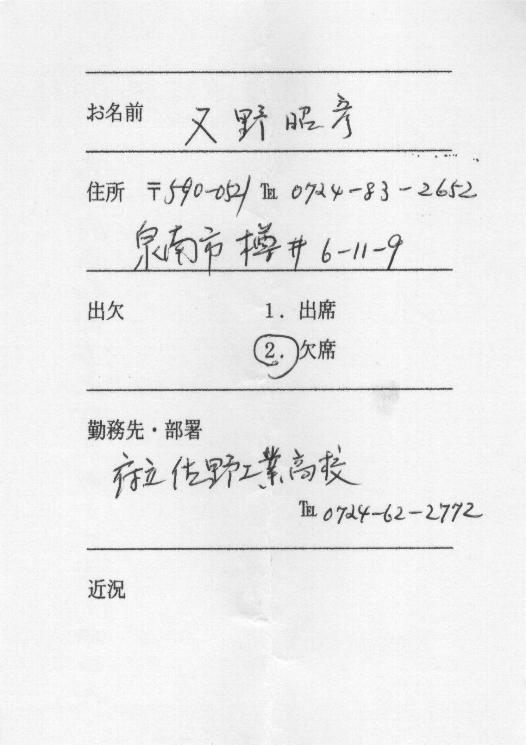 お名前 又野昭彦
住所 〒590-0521 ℡ 0724-83-2652
泉南市樽井6-11-9
出欠 1. 出席
2. 欠席
勤務先・部署
府立佐野工業高校
℡ 0724-62-2772
近況